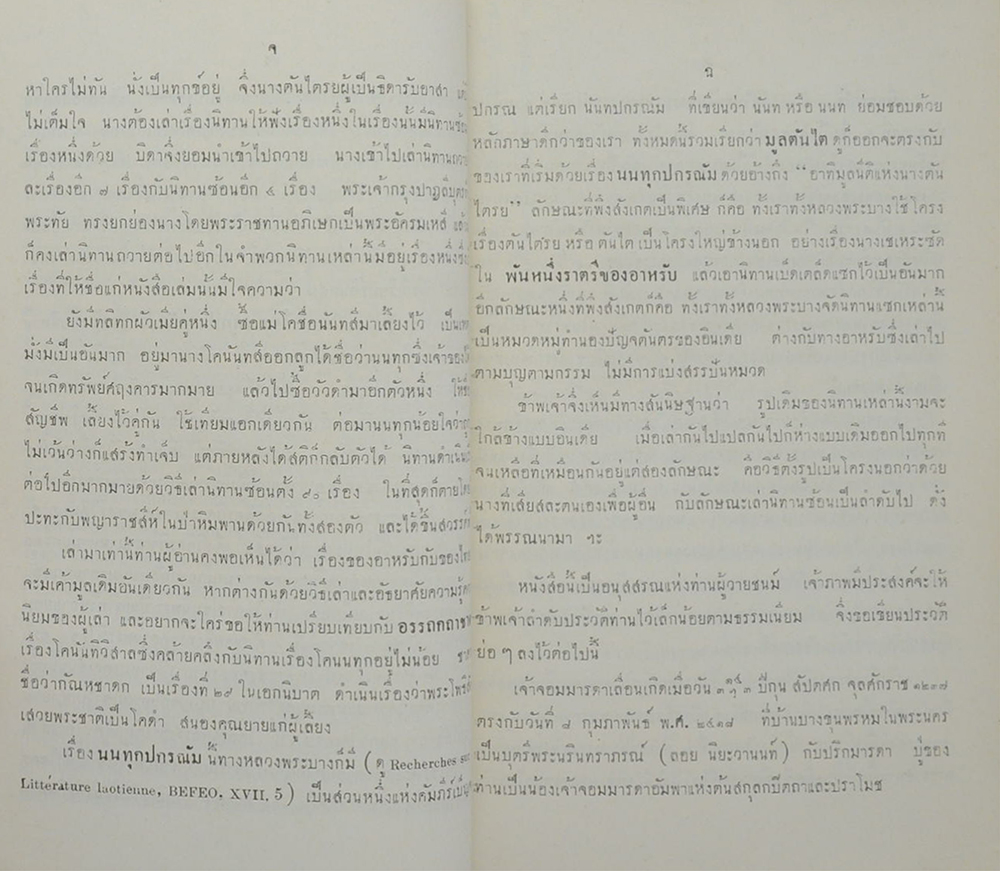 จ
หาใครไม่ทัน นั่งเป็นทุกข์อยู่ จึ่งนางตันไตรยผู้เป็นธิดารับอาสา
ไม่เต็มใจ นางต้องเล่าเรื่องนิทานให้ฟังเรื่องหนึ่งในเรื่องนั้นมีนิทานซ้อน
เรื่องหนึ่งด้วย บิดาจึ่งยอมนำเข้าไปถวาย นางเข้าไปเล่านิทานถวาย
ละเรื่องอีก ๗ เรื่องกับนิทานซ้อนอีก ๕ เรื่อง พระเจ้ากรุงปาฏลีบุตร
พระทัย ทรงยกย่องนางโดยพระราชทานอภิเษกเป็นพระอัครมเหสี
ก็คงเล่านิทานถวายต่อไปอีกในจำพวกนิทานเหล่านั้นมีอยู่เรื่องหนึ่ง
เรื่องที่ให้ชื่อแก่หนังสือเล่มนั้นมีใจความว่า
ยังมีทลิทกผัวเมียคู่หนึ่ง ซื้อแม่โคชื่อนันทสีมาเลี้ยงไว้
มั่งมีเป็นอันมาก อยู่มานางโคนันทสีออกลูกได้ชื่อว่านนทุกซึ่งเจ้าของ
จนเกิดทรัพย์ศฤงคารมากมาย แล้วไปซื้อวัวดำมาอีกตัวหนึ่ง
สัญชีพ เลี้ยงไว้คู่กัน ใช้เทียมแอกเดียวกัน ต่อมานนทุกน้อยใจว่า
ไม่เว้นว่างก็แสร้งทำเจ็บ แต่ภายหลังได้สติก็กลับตัวได้ นิทานดำเนิน
ต่อไปอีกมากมายด้วยวิธีเล่านิทานซ้อนตั้ง ๙๐ เรื่อง ในที่สุดก็ตาย
ปะทะกับพญาราชสีห์ในป่าหิมพานด้วยกันทั้งสองตัว และได้ขึ้นสวรรค์
เล่ามาเท่านี้ท่านผู้อ่านคงพอเห็นได้ว่า เรื่องของอาหรับกับของ
จะมีเค้ามูลเดิมอันเดียวกัน หากต่างกันด้วยวิธีเล่าและอัธยาศัยความรู้
นิยมของผู้เล่า และอยากจะใคร่ขอให้ท่านเปรียบเทียบกับ อรรถกถา
เรื่องโคนันทิวิสาลซึ่งคล้ายคลึงกับนิทานเรื่องโคนนทุกอยู่ไม่น้อย
ชื่อว่ากัณหชาดก เป็นเรื่องที่ ๒๙ ในเอกนิบาต ดำเนินเรื่องว่าพระโพธิ
เสวยพระชาติเป็นโคดำ สนองคุณยายแก่ผู้เลี้ยง
เรื่อง นนทุกปกรณัม นี้ทางหลวงพระบางก็มี ( ดู Recherches sur
Littérature laotienne, BEFEO, XVII, 5 ) เป็นส่วนหนึ่งแห่งคัมภีร์
ฉ
ปกรณ แต่เรียก นันทปกรณัม ที่เขียนว่า นันท หรือ นนท ย่อมชอบด้วย
หลักภาษาดีกว่าของเรา ทั้งหมดนี้รวมเรียกว่า มูลตันไต ดูก็ออกจะตรงกับ
ของเราที่เริ่มด้วยเรื่อง นนทุกปกรณัม ด้วยอ้างถึง “ อาทิมูลนีติแห่งนางตัน
ไตรย” ลักษณะที่พึงสังเกตเป็นพิเศษ ก็คือ ทั้งเราทั้งหลวงพระบางใช้โครง
เรื่องตันไตรย หรือ ตันไต เป็นโครงใหญ่ข้างนอก อย่างเรื่องนางเชเหระซัด
ใน พันหนึ่งราตรีของอาหรับ แล้วเอานิทานเบ็ดเตล็ดแซกไว้เป็นอันมาก
อีกลักษณะหนึ่งที่พึงสังเกตก็คือ ทั้งเราทั้งหลวงพระบางจัดนิทานแซกเหล่านี้
เป็นหมวดหมู่ทำนองปัญจตันตรของอินเดีย ต่างกับทางอาหรับซึ่งเล่าไป
ตามบุญตามกรรม ไม่มีการแบ่งสรรปันหมวด
ข้าพเจ้าจึ่งเห็นมีทางสันนิษฐานว่า รูปเดิมของนิทานเหล่านี้งามจะ
ใกล้ข้างแบบอินเดีย เมื่อเล่ากันไปแปลกันไปก็ห่างแบบเดิมออกไปทุกที
จนเหลือที่เหมือนกันอยู่แต่สองลักษณะ คือวิธีตั้งรูปเป็นโครงนอกว่าด้วย
นางที่เสียสละตนเองเพื่อผู้อื่น กับลักษณะเล่านิทานซ้อนเป็นลำดับไป ดั่ง
ได้พรรณนามา ฯะ
หนังสือนี้เป็นอนุสสรณแห่งท่านผู้วายชนม์ เจ้าภาพมีประสงค์จะให้
ข้าพเจ้าลำดับประวัติท่านไว้เล็กน้อยตามธรรมเนียม จึ่งขอเขียนประวัติ
ย่อ ๆ ลงไว้ต่อไปนี้
เจ้าจอมมารดาเลื่อนเกิดเมื่อวัน ปีกุน สัปตศก จุลศักราช ๑๒๓๗
ตรงกับวันที่ ๘ กุมภาพันธ์ พ.ศ. ๒๔๑๘ ที่บ้านบางขุนพรหมในพระนคร
เป็นบุตรีพระนรินทราภรณ์ ( ลอย นิยะวานนท์ ) กับปริกมารดา ปู่ของ
ท่านเป็นน้องเจ้าจอมมารดาอัมพาแห่งต้นสกุลกปิตถาและปราโมช